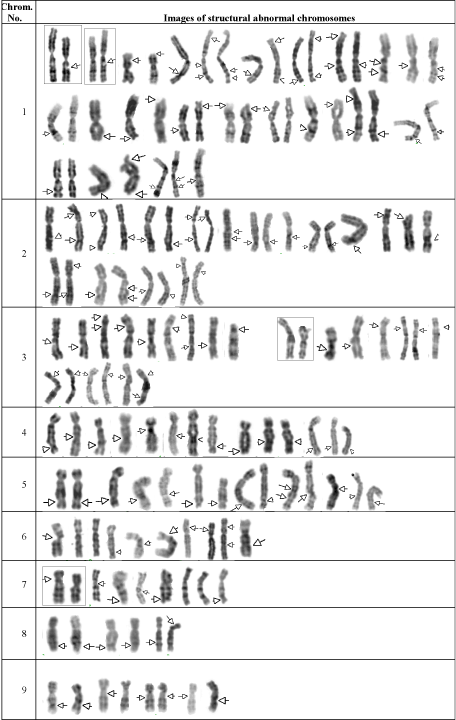 Chrom. No.
Images of structural abnormal chromosomes
1
2
3
4
5
6
7
8
9